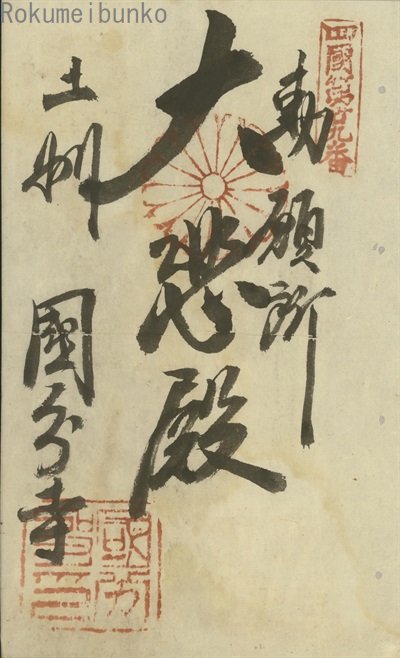 Rokumeibunko
四國第廿九番
勅願所
大悲殿
土州
國分寺